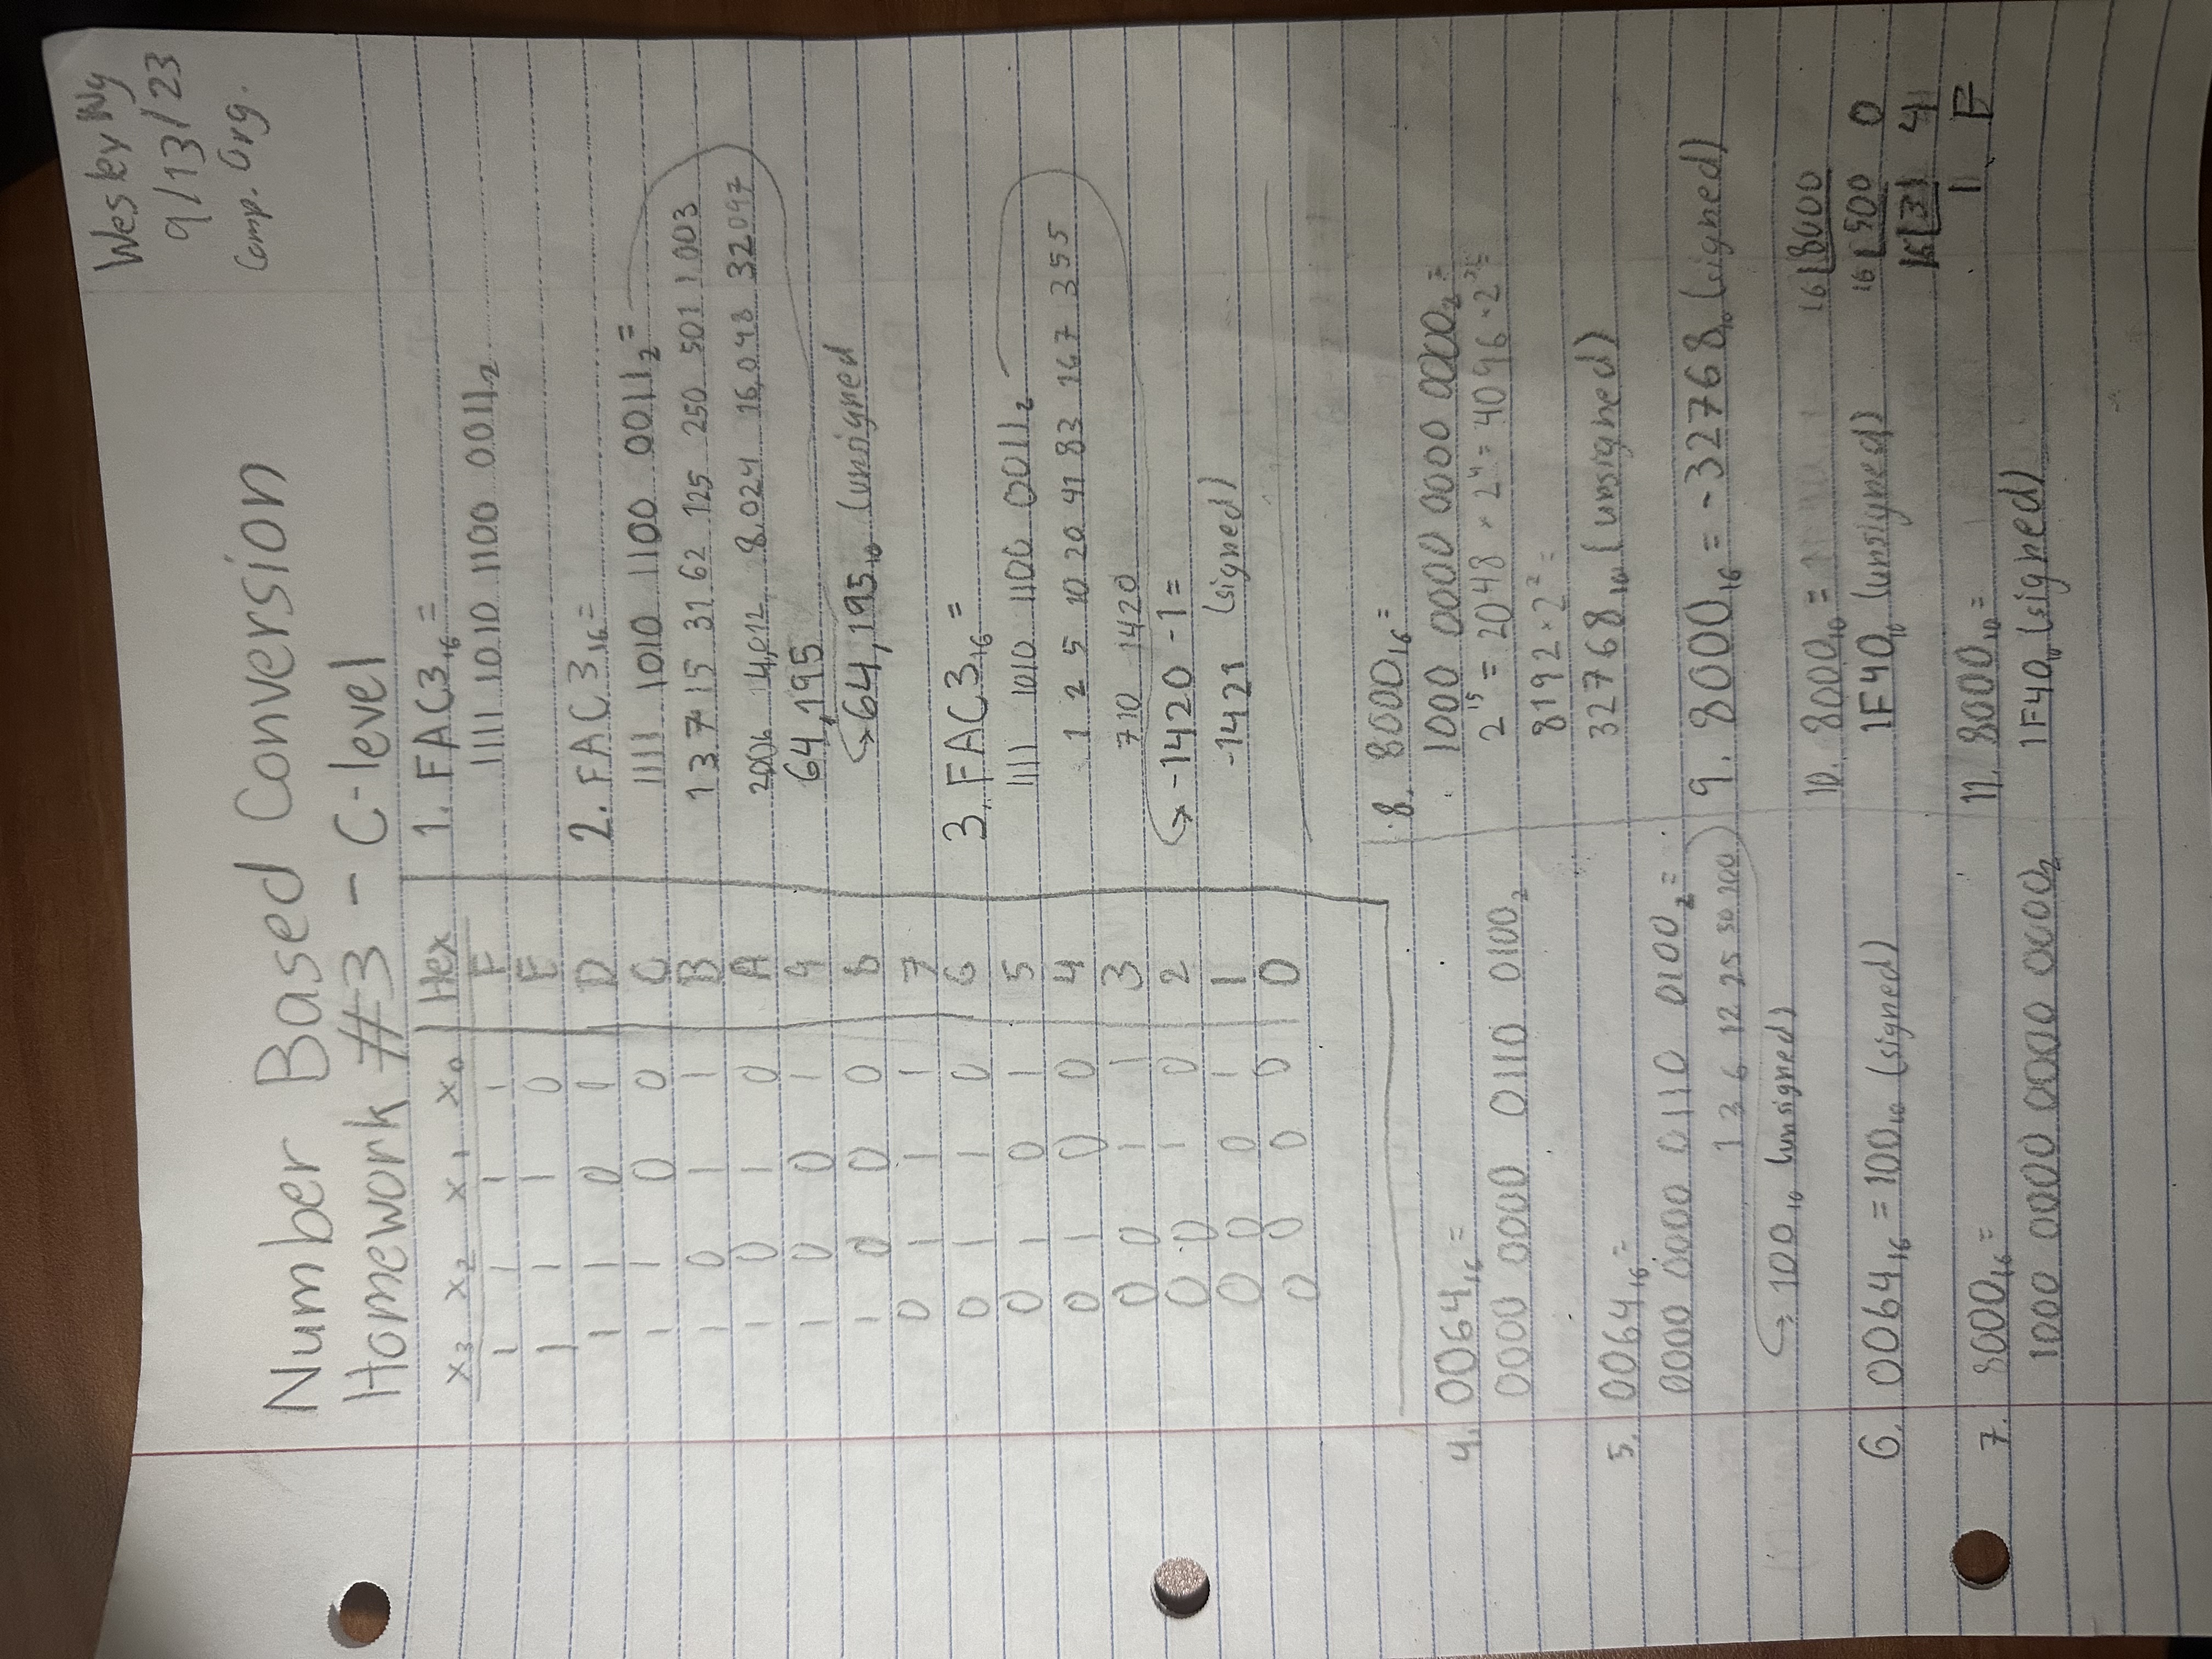 Wesley Ng
9/13/23
Comp. Org.
Number Based Conversion
Homework #3 - C-level
x₃ x₂ x₁ x₀ Hex
1 1 1 1 F
1 1 1 0 E
1 1 0 1 D
1 1 0 0 C
1 0 1 1 B
1 0 1 0 A
1 0 0 1 9
1 0 0 0 8
0 1 1 1 7
0 1 1 0 6
0 1 0 1 5
0 1 0 0 4
0 0 1 1 3
0 0 1 0 2
0 0 0 1 1
0 0 0 0 0
1. FAC3₁₆ =
1111 1010 1100 0011₂
2. FAC3₁₆ =
1111 1010 1100 0011₂ =
1 3 7 15 31 62 125 250 501 1003
2006 4,012 8,024 16,048 32097
64,195
64,195₁₀ (unsigned
3. FAC3₁₆ =
1111 1010 1100 0011₂
1 2 5 10 20 41 83 167 355
710 1420
-1420 -1 =
-1421 (signed)
4. 0064₁₆ =
0000 0000 0110 0100₂
5. 0064₁₆ =
0000 0000 0110 0100₂ =
1 3 6 12 25 50 100
100₁₀ (unsigned)
6. 0064₁₆ = 100₁₀ (signed)
7. 8000₁₆ =
1000 0000 0000 0000₂
8. 8000₁₆ =
1000 0000 0000 0000₂ =
2¹⁵ = 2048 × 2⁴ = 4096 × 2³ =
8192 × 2² =
32768₁₀ (unsigned)
9. 8000₁₆ = -32768₁₀ (signed)
10. 8000₁₀ =
1F40₁₀ (unsigned)
16 8000
16 500 0
16 31 4
1 F
11. 8000₁₀ =
1F40₁₀ (signed)